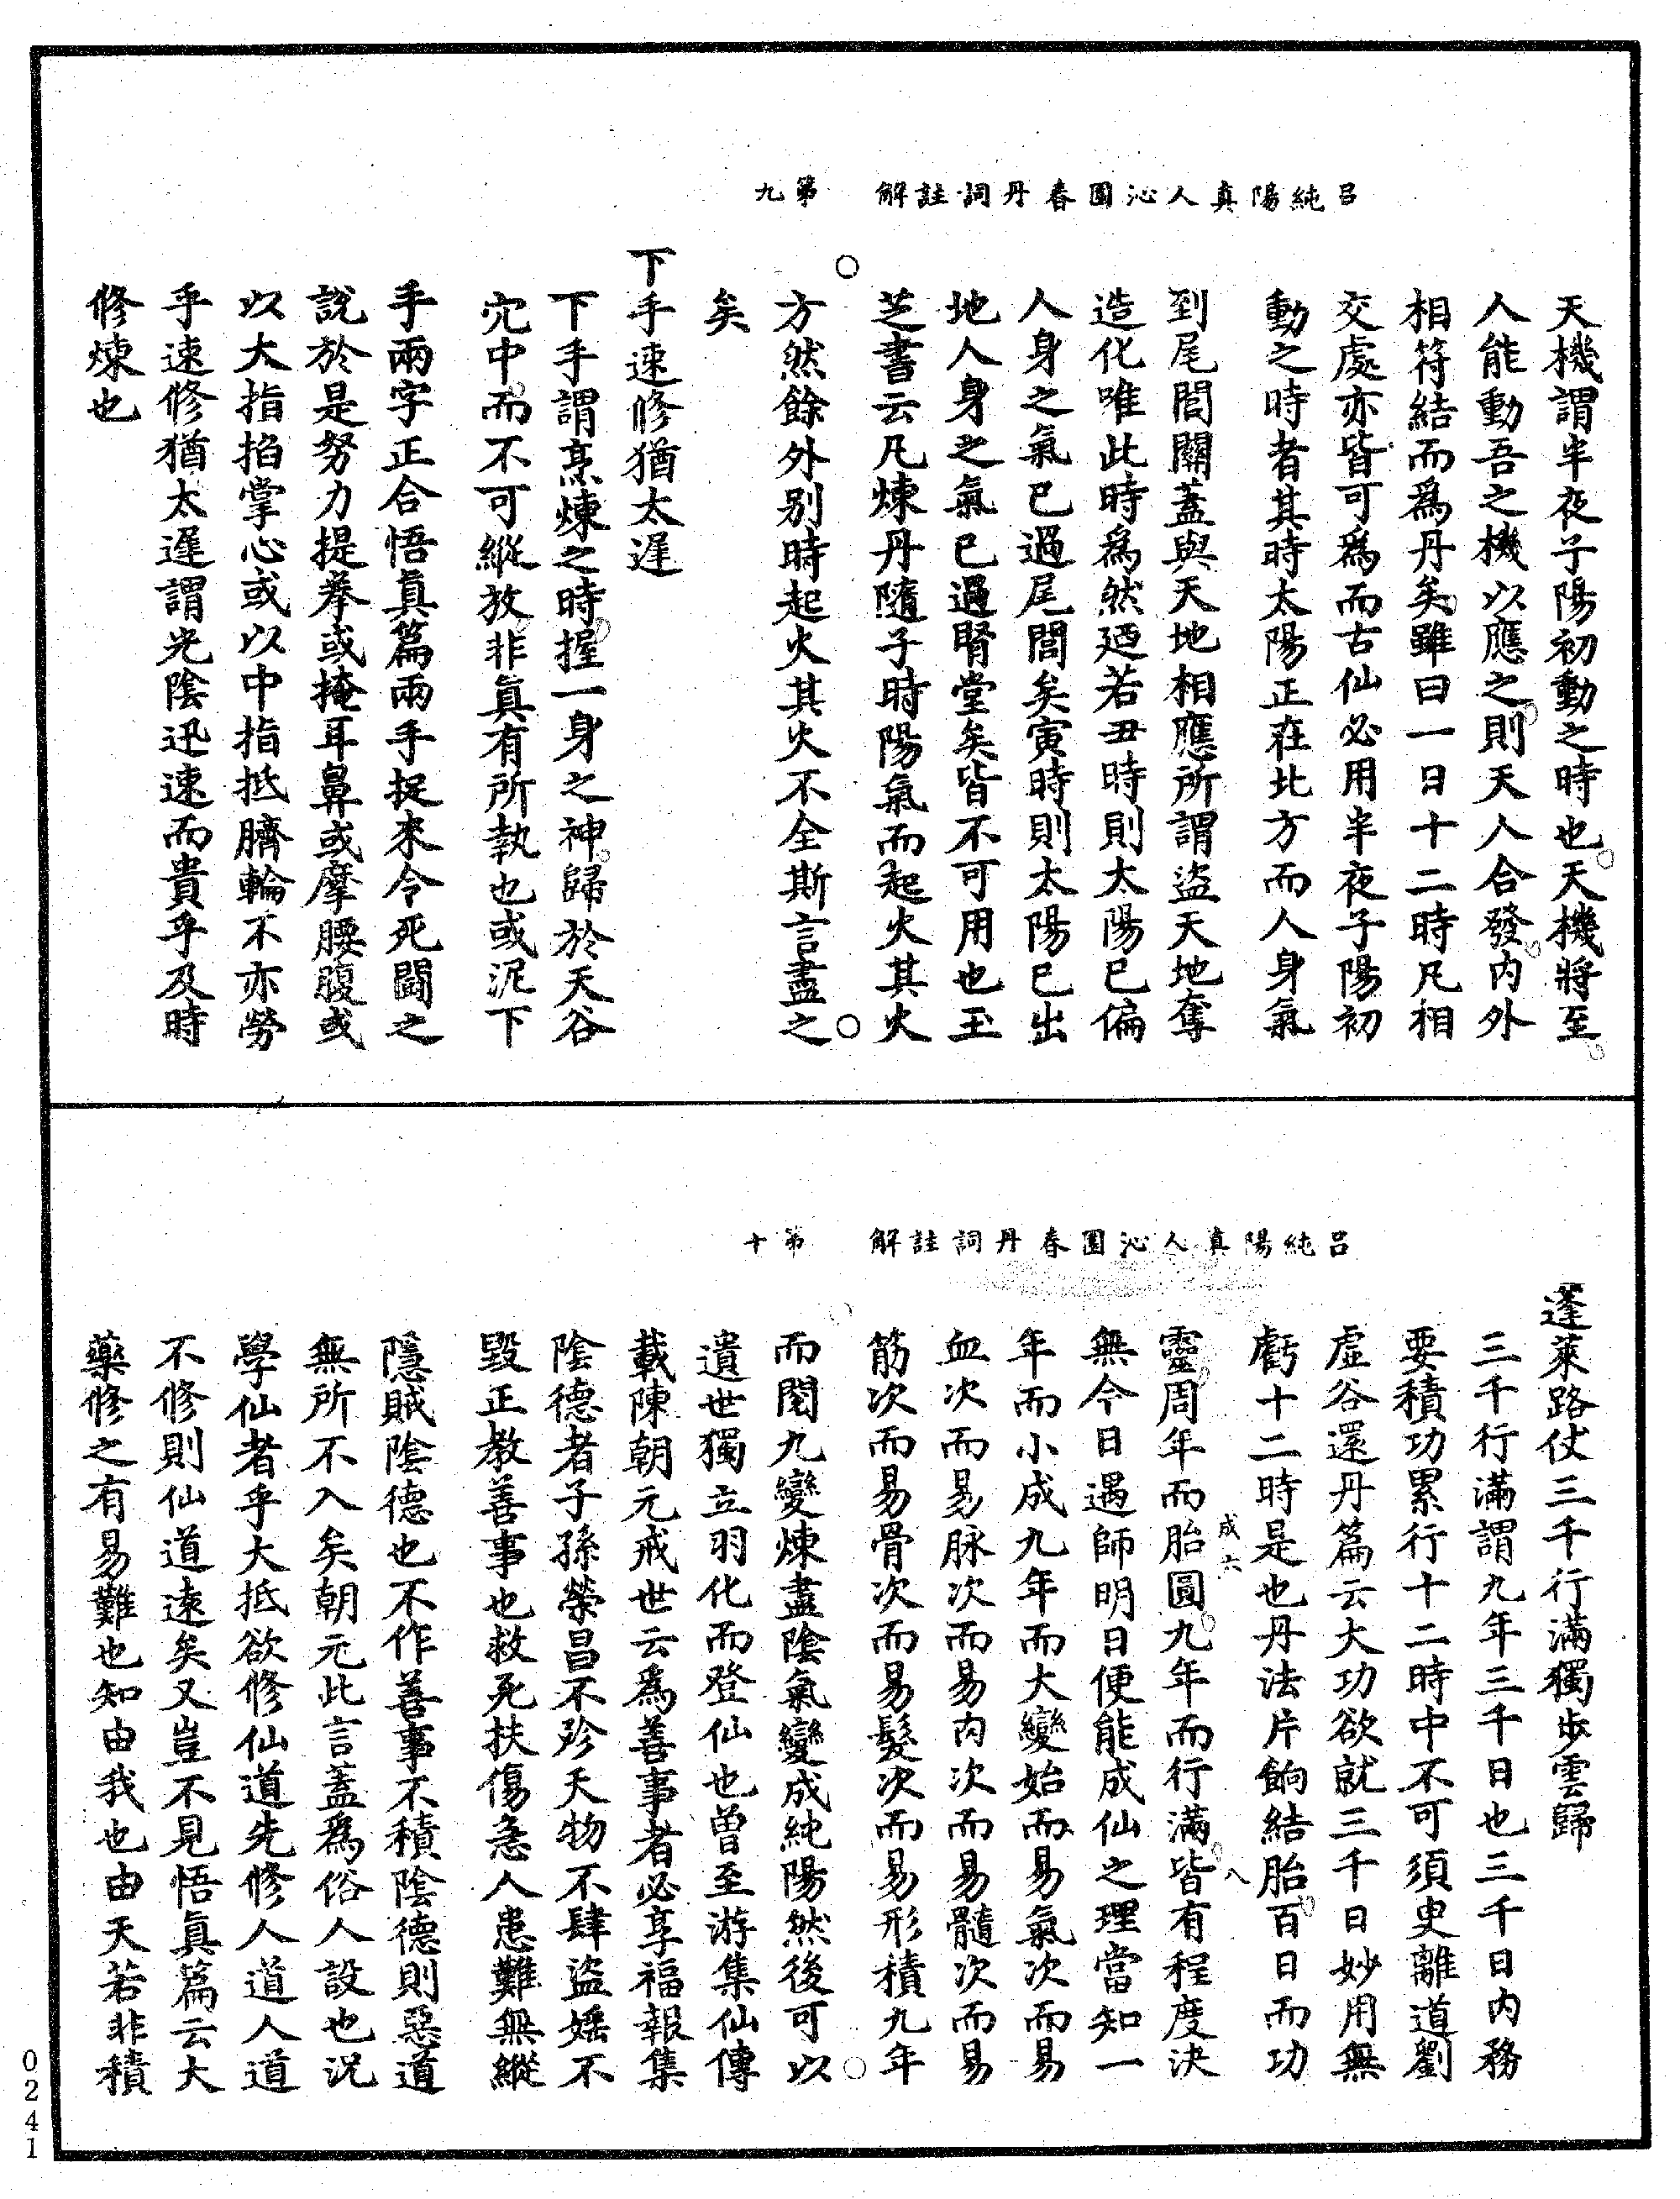 呂純陽真人沁園春丹詞註解　第九
天機謂半夜子陽初動之時也天機將至
人能動吾之機以應之則天人合發內外
相符結而爲丹矣雖曰一日十二時凡相
交處亦皆可爲而古仙必用半夜子陽初
動之時者其時太陽正在北方而人身氣
到尾閭關蓋與天地相應所謂盜天地奪
造化唯此時爲然廼若丑時則太陽已偏
人身之氣已過尾閭矣寅時則太陽已出
地人身之氣已過腎堂矣皆不可用也玉
芝書云凡煉丹隨子時陽氣而起火其火
方然餘外別時起火其火不全斯言盡之
矣
下手速修猶太遲
下手謂烹煉之時握一身之神歸於天谷
穴中而不可縱放非眞有所執也或泥下
手兩字正合悟眞篇兩手捉來令死鬪之
說於是努力提拳或掩耳鼻或摩腰腹或
以大指掐掌心或以中指抵臍輪不亦勞
乎速修猶太遲謂光陰迅速而貴乎及時
修煉也
呂純陽真人沁園春丹詞註解　第十
蓬萊路仗三千行滿獨步雲歸
三千行滿謂九年三千日也三千日內務
要積功累行十二時中不可須臾離道劉
虛谷還丹篇云大功欲就三千日妙用無
虧十二時是也丹法片餉結胎百日而功
成六　八
靈周年而胎圓九年而行滿皆有程度決
無今日遇師明日便能成仙之理當知一
年而小成九年而大變始而易氣次而易
血次而易脉次而易肉次而易髓次而易
筋次而易骨次而易髮次而易形積九年
而閱九變煉盡陰氣變成純陽然後可以
遺世獨立羽化而登仙也曾至游集仙傳
載陳朝元戒世云爲善事者必享福報集
陰德者子孫榮昌不殄天物不肆盜婬不
毀正教善事也救死扶傷急人患難無縱
隱賊陰德也不作善事不積陰德則惡道
無所不入矣朝元此言蓋爲俗人設也況
學仙者乎大抵欲修仙道先修人道人道
不修則仙道遠矣又豈不見悟眞篇云大
藥修之有易難也知由我也由天若非積
0241